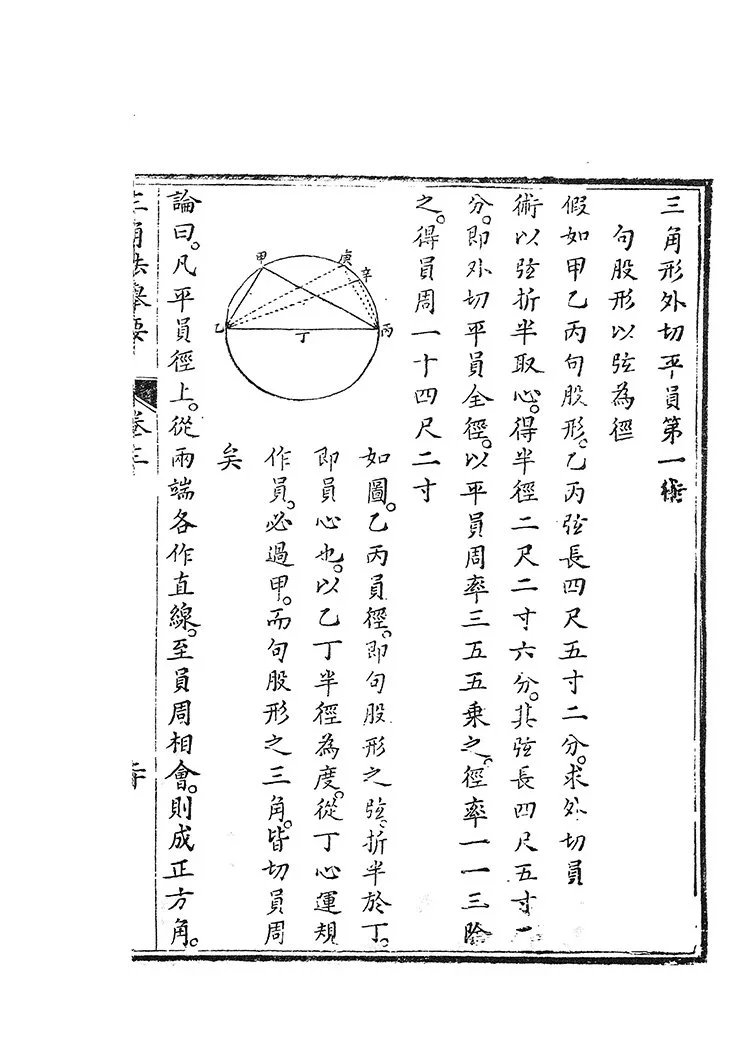 三角形外切平員第一術
句股形以弦為徑
假如甲乙丙句股形。乙丙弦長四尺五寸二分。求外切員
術以弦折半取心。得半徑二尺二寸六分。其弦長四尺五寸二
分。即外切平員全徑。以平員周率三五五乘之。徑率一一三除
之。得員周一十四尺二寸
甲
庚
辛
乙
丁
丙
如圖。乙丙員徑。即句股形之弦。折半於丁。
即員心也。以乙丁半徑為度。從丁心運規
作員。必過甲。而句股形之三角。皆切員周
矣
論曰。凡平員徑上。從兩端各作直線。至員周相會。則成正方角。
三角法舉要 卷三